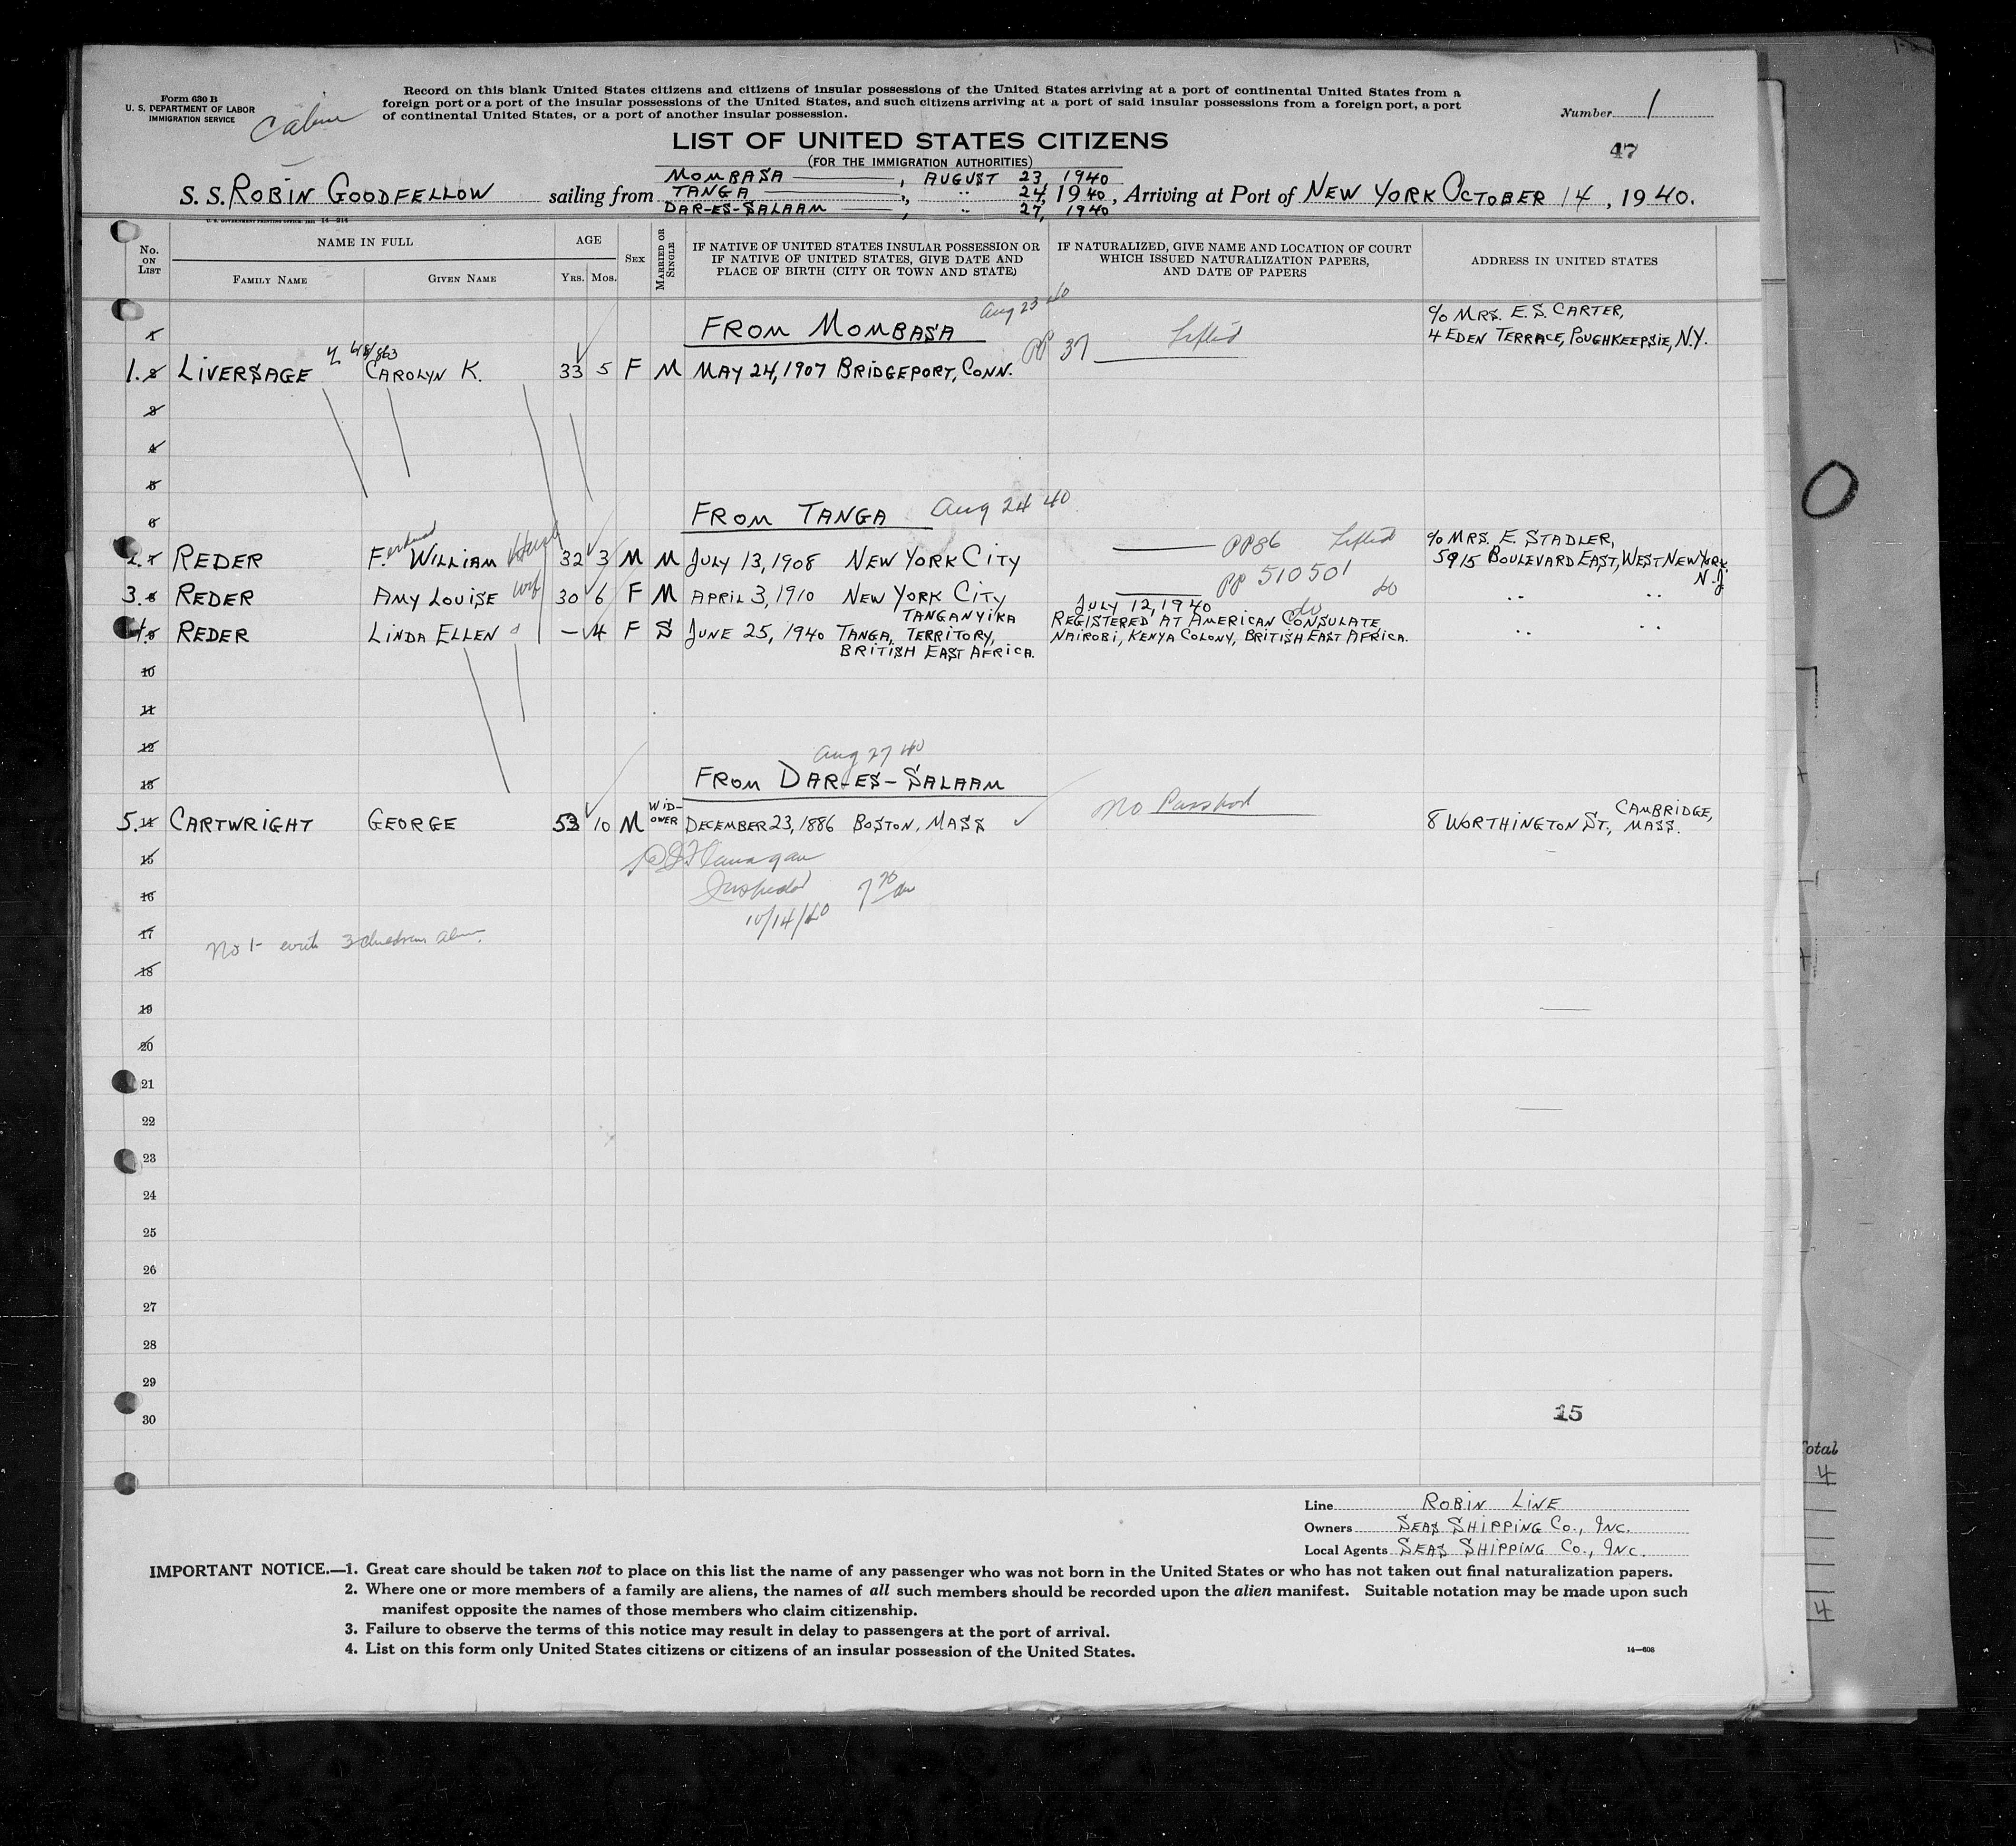 Form 630 B
U. S. DEPARTMENT OF LABOR
IMMIGRATION SERVICE
Cabin
Record on this blank United States citizens and citizens of insular possessions of the United States arriving at a port of continental United States from a
foreign port or a port of the insular possessions of the United States, and such citizens arriving at a port of said insular possessions from a foreign port, a port
of continental United States, or a port of another insular possession.
Number 1
47
LIST OF UNITED STATES CITIZENS
(FOR THE IMMIGRATION AUTHORITIES)
MOMBASA ——, AUGUST 23, 1940
S.S. ROBIN GOODFELLOW sailing from TANGA ——, " 24, 1940, Arriving at Port of NEW YORK OCTOBER 14, 1940.
DAR-ES-SALAAM ——, " 27, 1940
U. S. GOVERNMENT PRINTING OFFICE: 1931 14—214
No. ON LIST
NAME IN FULL
FAMILY NAME
GIVEN NAME
AGE
YRS. MOS.
SEX
MARRIED OR SINGLE
IF NATIVE OF UNITED STATES INSULAR POSSESSION OR
IF NATIVE OF UNITED STATES, GIVE DATE AND
PLACE OF BIRTH (CITY OR TOWN AND STATE)
IF NATURALIZED, GIVE NAME AND LOCATION OF COURT
WHICH ISSUED NATURALIZATION PAPERS,
AND DATE OF PAPERS
ADDRESS IN UNITED STATES
Aug 23 40
1 FROM MOMBASA Lifted
c/o MRS. E. S. CARTER,
4 EDEN TERRACE, POUGHKEEPSIE, N.Y.
PP 37
1. 2 LIVERSAGE CAROLYN K. 33 5 F M MAY 24, 1907 BRIDGEPORT, CONN.
3
4
5
6 FROM TANGA Aug 24 40
2. 7 REDER F. WILLIAM 32 3 M M JULY 13, 1908 NEW YORK CITY —— PP86 Lifted c/o MRS. E. STADLER,
5915 BOULEVARD EAST, WEST NEW YORK, N.J.
PP 510501 do
3. 8 REDER AMY LOUISE wif 30 6 F M APRIL 3, 1910 NEW YORK CITY —— " "
4. 9 REDER LINDA ELLEN — 4 F S JUNE 25, 1940 TANGA, TANGANYIKA TERRITORY,
BRITISH EAST AFRICA.
JULY 12, 1940 do
REGISTERED AT AMERICAN CONSULATE
NAIROBI, KENYA COLONY, BRITISH EAST AFRICA. " "
10
11
12
Aug 27 40
13 FROM DAR-ES-SALAAM
5. 14 CARTWRIGHT GEORGE 53 10 M WID-OWER DECEMBER 23, 1886 BOSTON, MASS No Passport 8 WORTHINGTON ST., CAMBRIDGE, MASS.
15 Flanagan
16 Inspector
10/14/40
17 No 1- with 3 children alien.
18
19
20
21
22
23
24
25
26
27
28
29
30
15
Total
4
4
Line ROBIN LINE
Owners SEAS SHIPPING CO., INC.
Local Agents SEAS SHIPPING CO., INC.
IMPORTANT NOTICE.—1. Great care should be taken not to place on this list the name of any passenger who was not born in the United States or who has not taken out final naturalization papers.
2. Where one or more members of a family are aliens, the names of all such members should be recorded upon the alien manifest. Suitable notation may be made upon such
manifest opposite the names of those members who claim citizenship.
3. Failure to observe the terms of this notice may result in delay to passengers at the port of arrival.
4. List on this form only United States citizens or citizens of an insular possession of the United States.
14—608